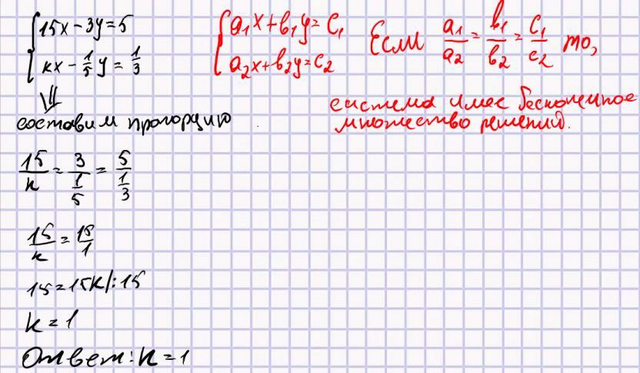 {15x-3y=5
{kx-1/5y=1/3
составим пропорцию
15/k=3/(1/5)=5/(1/3)
15/k=15/1
15=15k|:15
k=1
Ответ: k=1
{a₁x+b₁y=c₁
{a₂x+b₂y=c₂
Если a₁/a₂=b₁/b₂=c₁/c₂ то,
система имее бесконечное
множество решений.